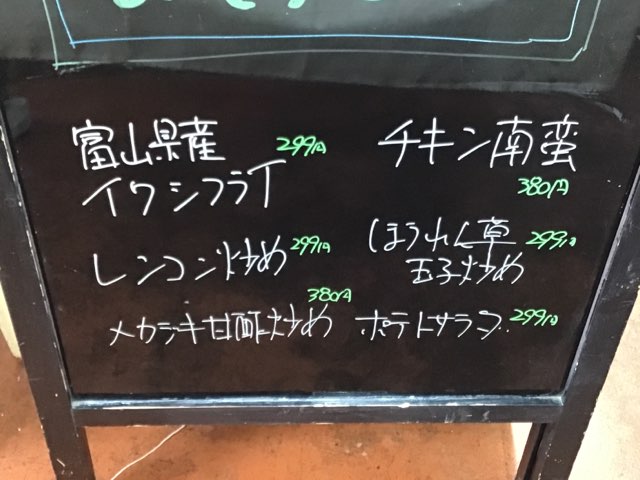 富山県産 299円
イワシフライ
チキン南蛮
380円
レンコン炒め 299円
ほうれん草 299円
玉子炒め
380円
メカジキ甘酢炒め
ポテトサラダ 299円